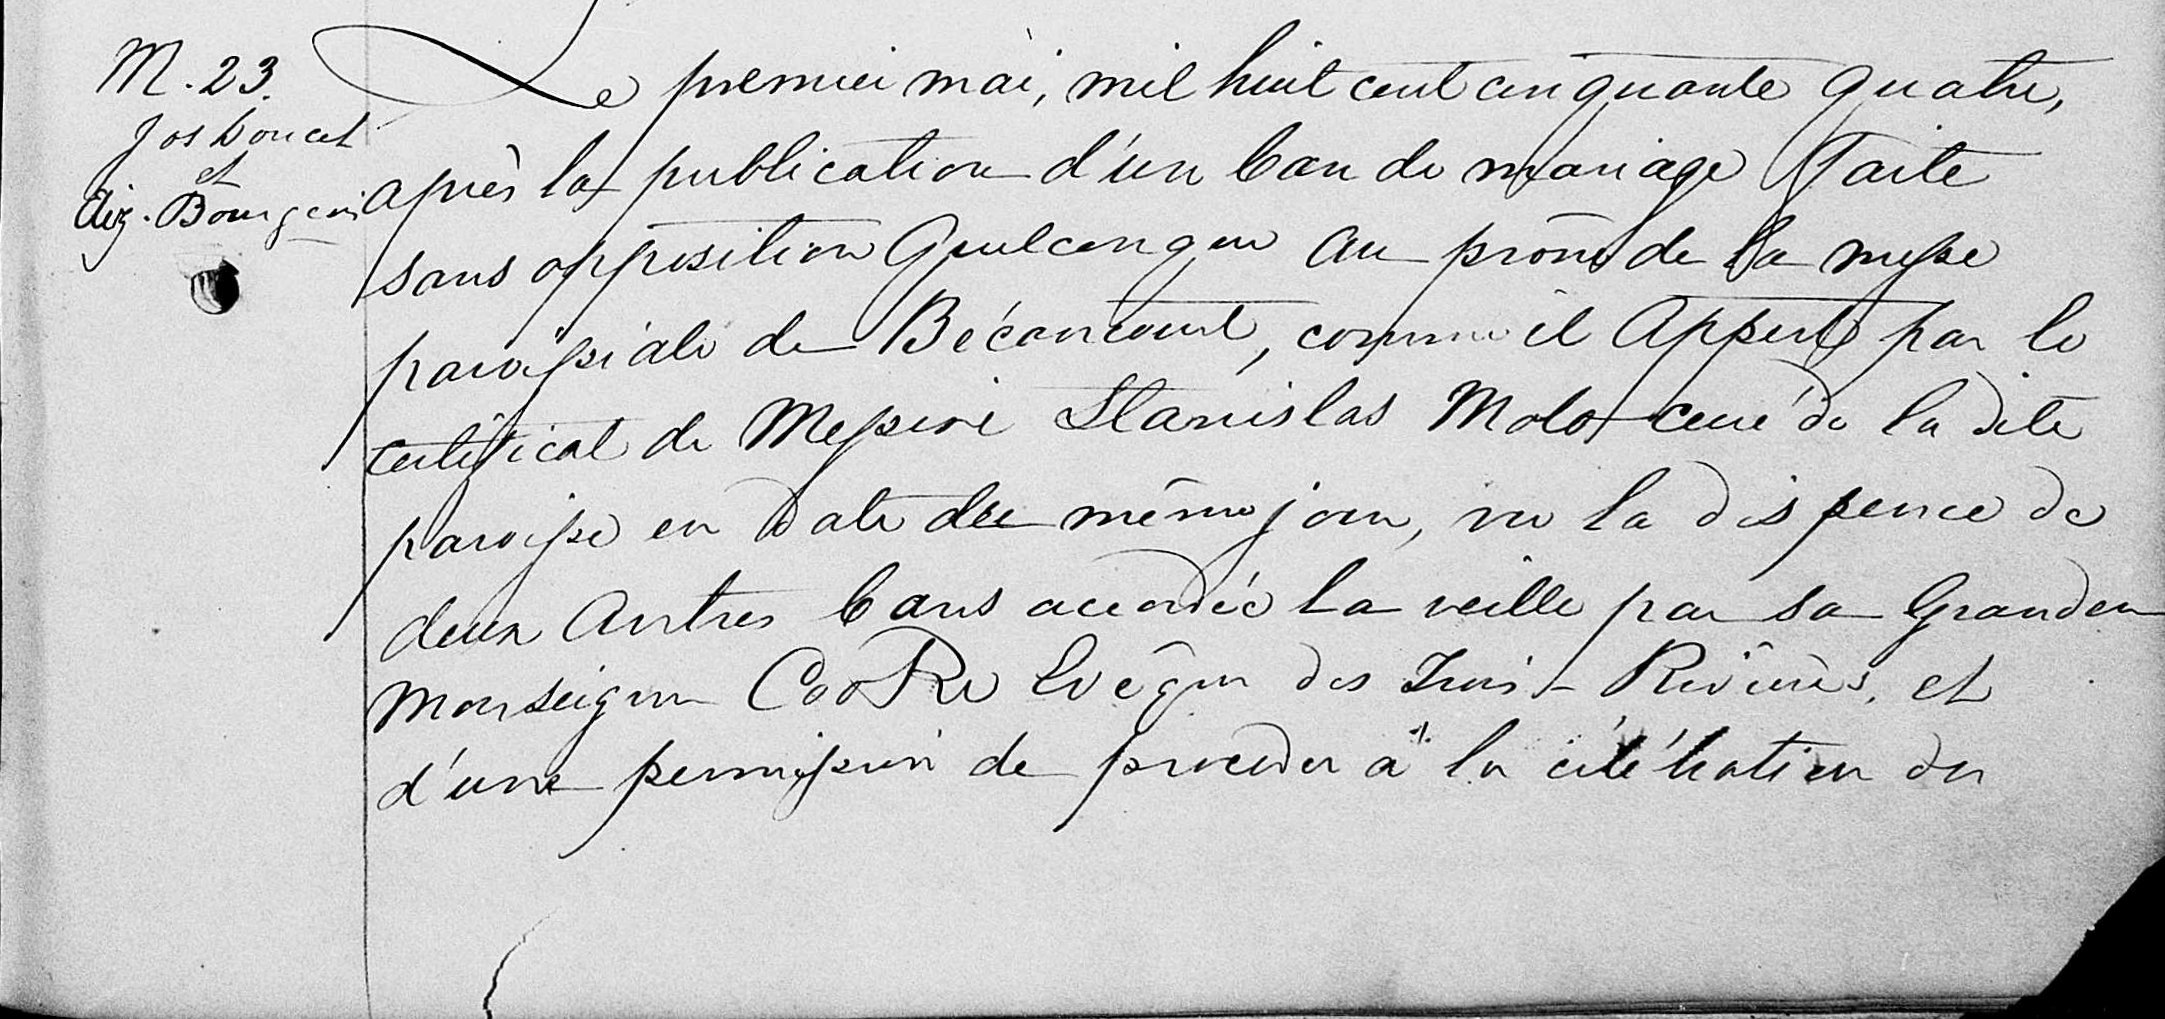 M. 23.
Jos Doucet
et
Eliz. Bourgeois
Le premier mai, mil huit cent cinquante quatre,
après la publication d'un ban de mariage faite
sans opposition quelconque au prône de la messe
paroissiale de Bécancourt, comme il appert par le
certificat de Messire Stanislas Malo curé de la dite
paroisse en date du même jour, vu la dispence de
deux autres bans accordée la veille par sa Grandeur
Monseigneur Cooke Evêque des Trois-Rivières, et
d'une permission de proceder à la célébration du